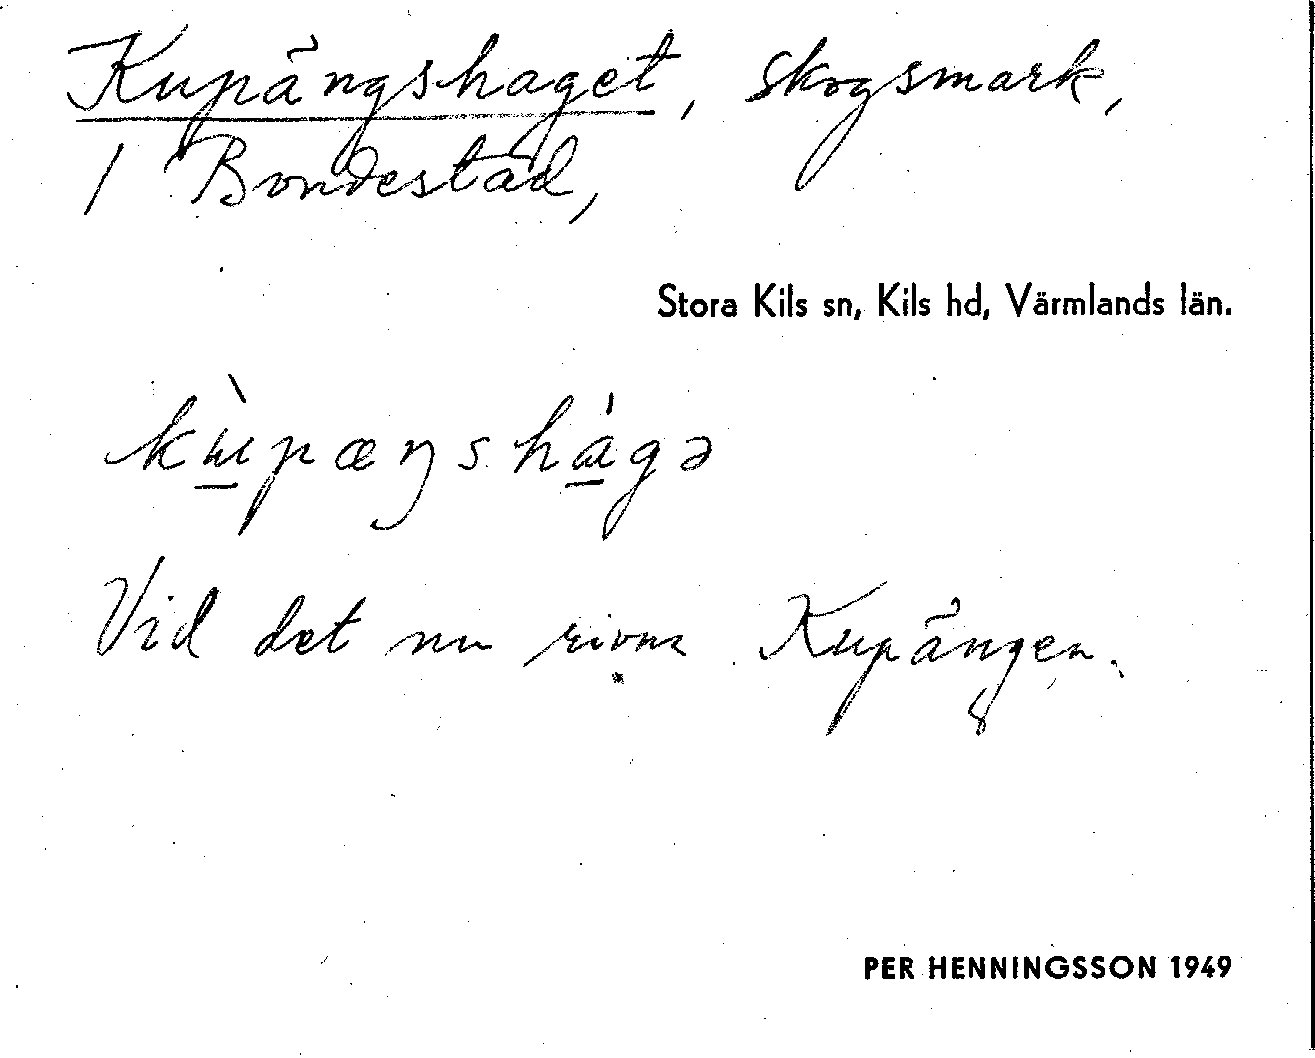 Kupängshaget, skogsmark,
/ Bondestad,
Stora Kils sn, Kils hd, Värmlands län.
kùpæŋshágə
Vid det nu rivna Kupängen.
PER HENNINGSSON 1949